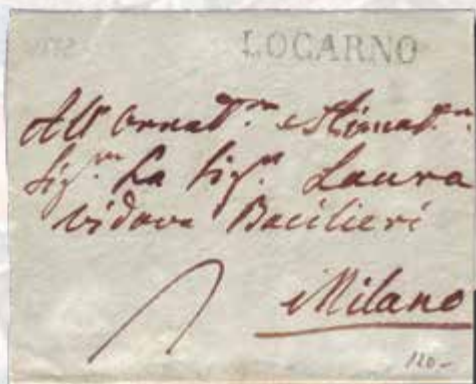 LOCARNO
All' Ornat.ma e Stimat.ma
Sig.ra La Sig.ra Laura
vidova Bacilieri
Milano
120-